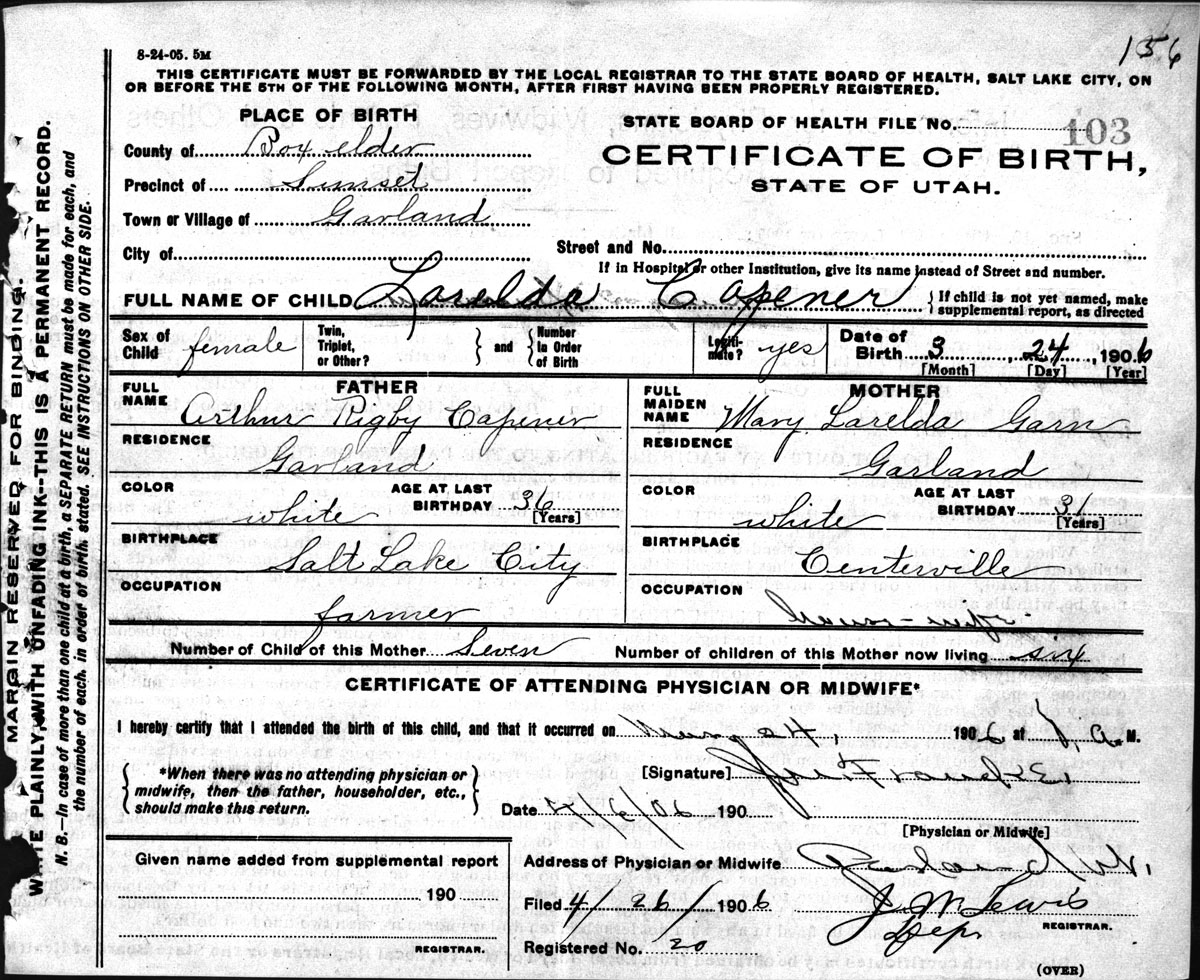 156
8-24-05. 5M
THIS CERTIFICATE MUST BE FORWARDED BY THE LOCAL REGISTRAR TO THE STATE BOARD OF HEALTH, SALT LAKE CITY, ON
OR BEFORE THE 5TH OF THE FOLLOWING MONTH, AFTER FIRST HAVING BEEN PROPERLY REGISTERED.
PLACE OF BIRTH
STATE BOARD OF HEALTH FILE No. 103
County of Box elder
CERTIFICATE OF BIRTH,
STATE OF UTAH.
Precinct of Sunset
Town or Village of Garland
City of
Street and No.
If in Hospital or other Institution, give its name instead of Street and number.
FULL NAME OF CHILD Lorelda Capener } If child is not yet named, make supplemental report, as directed
Sex of Child female
Twin, Triplet, or Other? } and { Number In Order of Birth
Legiti-mate? yes
Date of Birth 3 24, 1906
[Month] [Day] [Year]
FATHER
FULL NAME Arthur Rigby Capener
RESIDENCE Garland
COLOR white
AGE AT LAST BIRTHDAY 36 [Years]
BIRTHPLACE Salt Lake City
OCCUPATION farmer
MOTHER
FULL MAIDEN NAME Mary Lorelda Garn
RESIDENCE Garland
COLOR white
AGE AT LAST BIRTHDAY 31 [Years]
BIRTHPLACE Centerville
OCCUPATION house-wife
Number of Child of this Mother Seven
Number of children of this Mother now living six
CERTIFICATE OF ATTENDING PHYSICIAN OR MIDWIFE*
I hereby certify that I attended the birth of this child, and that it occurred on 1906 at A. M.
{ *When there was no attending physician or midwife, then the father, householder, etc., should make this return. }
[Signature]
Date 4/6/06 190
[Physician or Midwife]
Given name added from supplemental report
190
REGISTRAR.
Address of Physician or Midwife Garland Ut.
Filed 4/26/1906 J. M. Lewis
Dep. REGISTRAR.
Registered No. 20
(OVER)
MARGIN RESERVED FOR BINDING.
WRITE PLAINLY, WITH UNFADING INK--THIS IS A PERMANENT RECORD.
N. B.--In case of more than one child at a birth, a SEPARATE RETURN must be made for each, and
the number of each, in order of birth, stated. SEE INSTRUCTIONS ON OTHER SIDE.